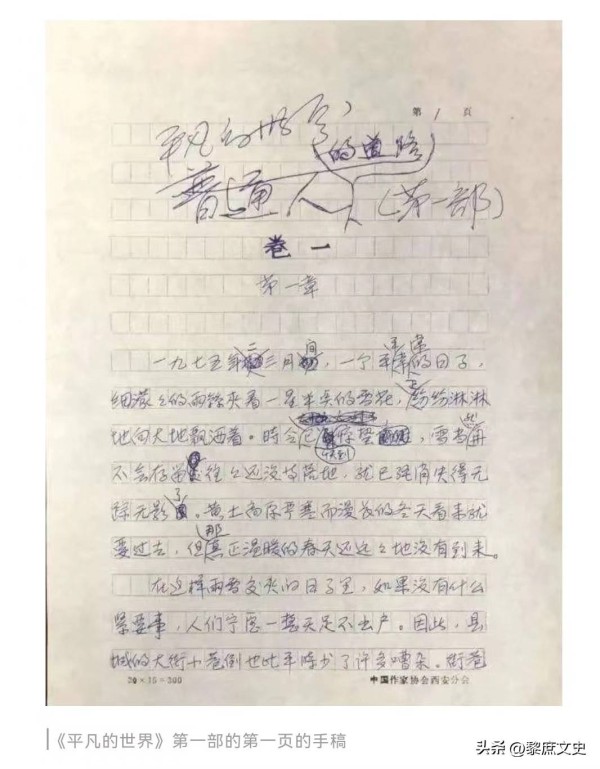 第 1 页
平凡的世界
的道路
普通人
(第一部)
卷一
第一章
二 间 平 常
一九七五年三月，一个平的日子，
细濛々的雨丝夹着一星半点的雪花，纷纷淋淋
地向大地飘洒着。时令已惊蛰，雪当再
快到
不会存留往々还没等落地，就已经消失得无
了
踪无影。黄土高原严寒而漫长的冬天看来就
那
要过去，但真正温暖的春天还远々地没有到来。
在这样雨雪交夹的日子里，如果没有什么
紧要事，人们宁愿一整天足不出户。因此，县
城的大街小巷倒也比平时少了许多嘈杂。街巷
20×15=300
中国作家协会西安分会
《平凡的世界》第一部的第一页的手稿
头条@黎庶文史